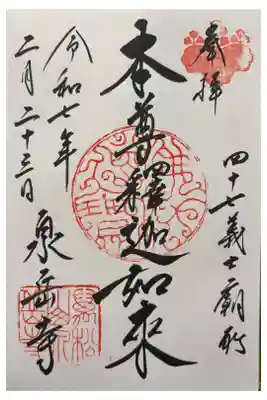 奉拝
四十七義士廟所
本尊釋迦如来
令和七年
二月二十三日
泉岳寺